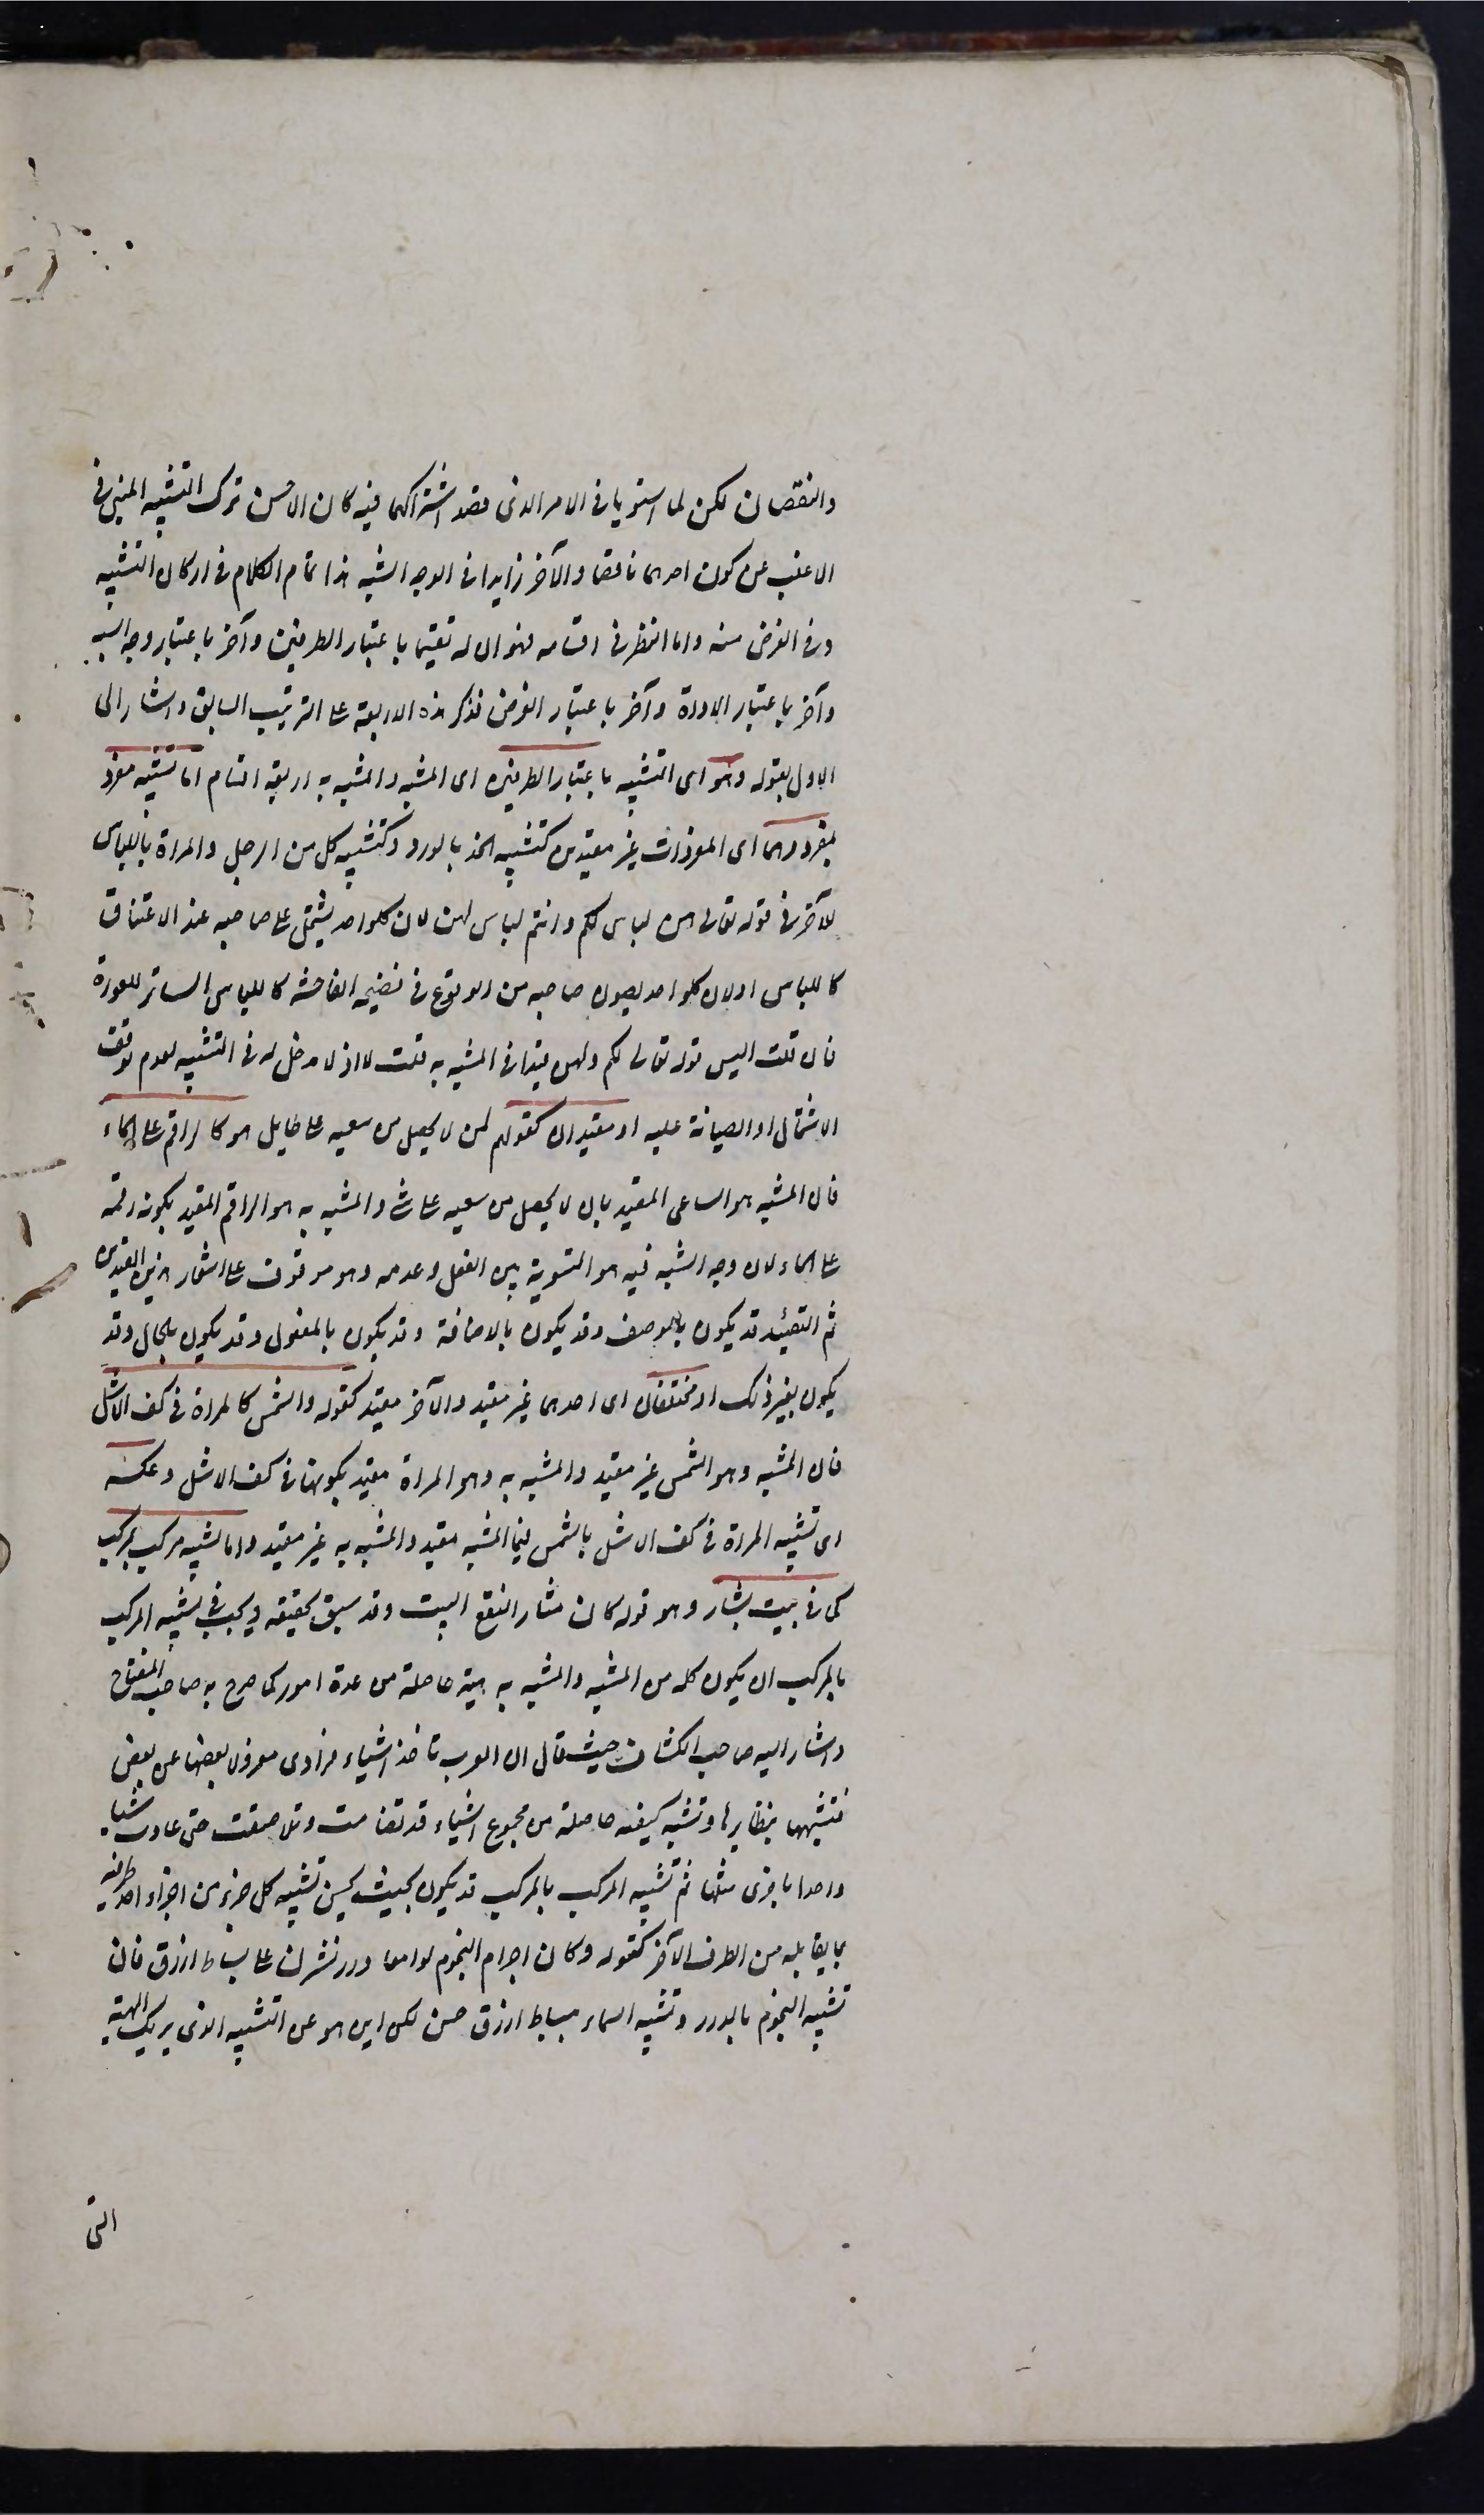 والنقصان لكن لما استويا فى الامر الذى قصد اشتراكهما فيه كان الاحسن ترك التشبيه المنبئ فى
الاغلب عن كون احدهما ناقصا والآخر زايدا فى الوجه الشبه هذا تمام الكلام فى اركان التشبيه
وفى الغرض منه واما النظر فى اقسامه فهو ان له تقسيما باعتبار الطرفين وآخر باعتبار وجه الشبه
وآخر باعتبار الاداة وآخر باعتبار الغرض فذكر هذه الاربعة على الترتيب السابق واشار الى
الاول بقوله وهو اى التشبيه باعتبار الطرفين اى المشبه والمشبه به اربعة اقسام اما تشبيه مفرد
بمفرد وهما اى المفردان غير مقيدين كتشبيه الخد بالورد وكتشبيه كل من الرجل والمراة باللباس
للآخر فى قوله تعالى هن لباس لكم وانتم لباس لهن لان كلواحد يشتمل على صاحبه عند الاعتناق
كاللباس او لان كلواحد يصون صاحبه من الوقوع فى فضيحة الفاحشة كاللباس الساتر للعورة
فان قلت اليس قوله تعالى لكم ولهن قيدا فى المشبه به قلت لا اذ لا مدخل له فى التشبيه لعدم توقف
الاشتمال او الصيانة عليه او مقيدان كقولهم لمن لا يحصل من سعيه على طايل هو كالراقم على الماء
فان المشبه هو الساعى المقيد بان لا يحصل من سعيه على شئ والمشبه به هو الراقم المقيد بكونه رقمه
على الماء لان وجه الشبه فيه هو التسوية بين الفعل وعدمه وهو موقوف على اعتبار هذين القيدين
ثم التقييد قد يكون بالوصف وقد يكون بالاضافة وقد يكون بالمفعول وقد يكون بالحال وقد
يكون بغير ذلك او مختلفان اى احدهما غير مقيد والآخر مقيد كقوله والشمس كالمراة فى كف الاشل
فان المشبه وهو الشمس غير مقيد والمشبه به وهو المراة مقيد بكونها فى كف الاشل وعكسه
اى تشبيه المراة فى كف الاشل بالشمس فيما المشبه مقيد والمشبه به غير مقيد واما تشبيه مركب بمركب
كما فى بيت بشار وهو قوله كان مثار النقع البيت وقد سبق تحقيقه ويجب فى تشبيه المركب
بالمركب ان يكون كل من المشبه والمشبه به هيئة حاصلة من عدة امور كما صرح به صاحب المفتاح
واشار اليه صاحب الكشاف حيث قال ان العرب تاخذ اشياء فرادى معزولا بعضها عن بعض
فتشبهها بنظايرها وتشبه كيفية حاصلة من مجموع اشياء قد تضامت وتلاصقت حتى عادت شيئا
واحدا باخرى مثلها ثم تشبيه المركب بالمركب قد يكون بحيث يحسن تشبيه كل جزء من اجزاء احد طرفيه
بما يقابله من الطرف الآخر كقوله وكان اجرام النجوم لوامعا درر نثرن على بساط ازرق فان
تشبيه النجوم بالدرر وتشبيه السماء ببساط ازرق حسن لكن اين هو عن التشبيه الذى يريك الهيئة
التى